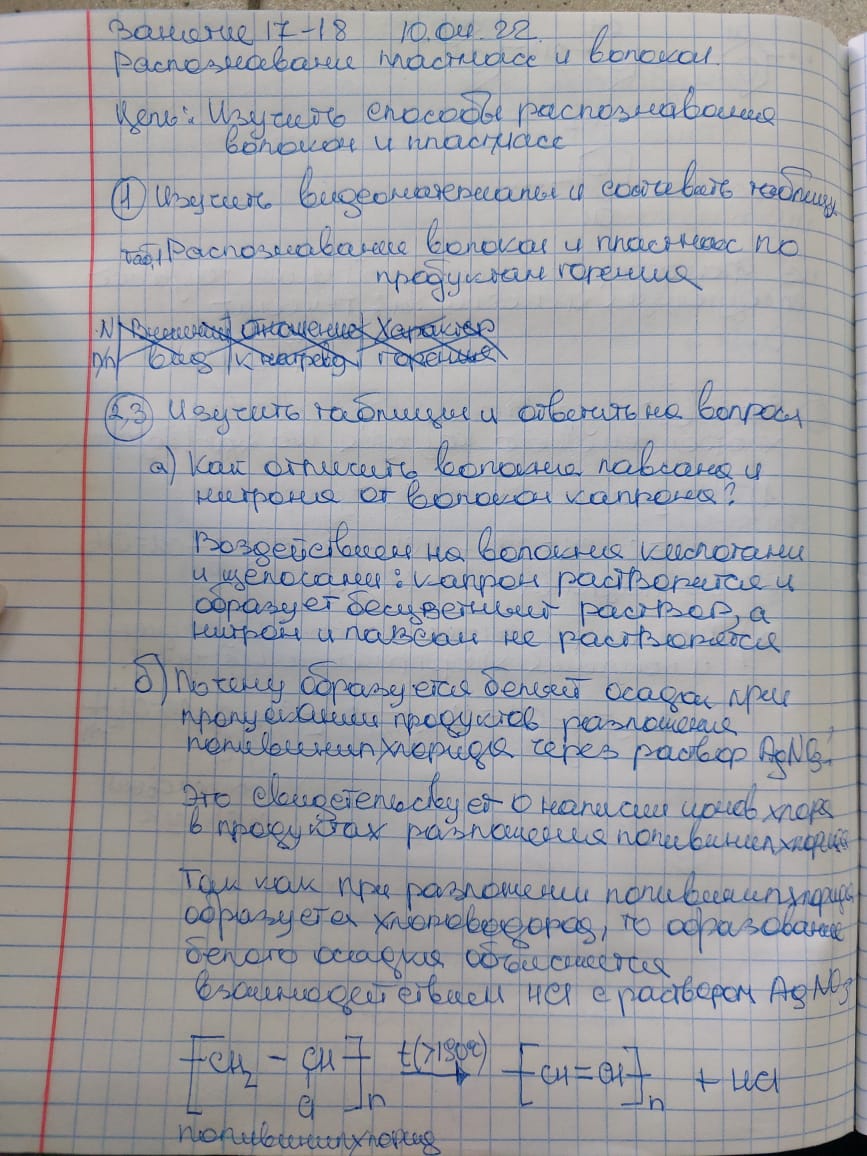 Занятие 17-18 10.04.22.
Распознавание пластмасс и волокон.
Цель: Изучить способы распознавания
волокон и пластмасс
1 Изучить видеоматериалы и составить таблицу
Таб.1 Распознавание волокон и пластмасс по
продуктам горения
N Внешний отношение Характер
п/п вид к нагрев. горения
2,3 Изучить таблицы и ответить на вопросы
а) Как отличить волокна лавсана и
нитрона от волокон капрона?
Воздействием на волокна кислотами
и щелосами: капрон растворится и
образует бесцветный раствор, а
нитрон и лавсан не растворятся
б) Почему образуется белый осадок при
пропускании продуктов разложения
поливинилхлорида через раствор AgNO3.
Это свидетельсвует оналисии ионов хлора
в продуктах разложения поливинилхлорида
Так как при разложении поливинилхлорида
образуется хлороводород, то образование
белого осадка объясняется
взаимодействием HCl с раствором AgNO3
[-CH2 - CH]n t(>180°c) → [-CH=CH-]n + HCl
Cl
поливинилхлорид